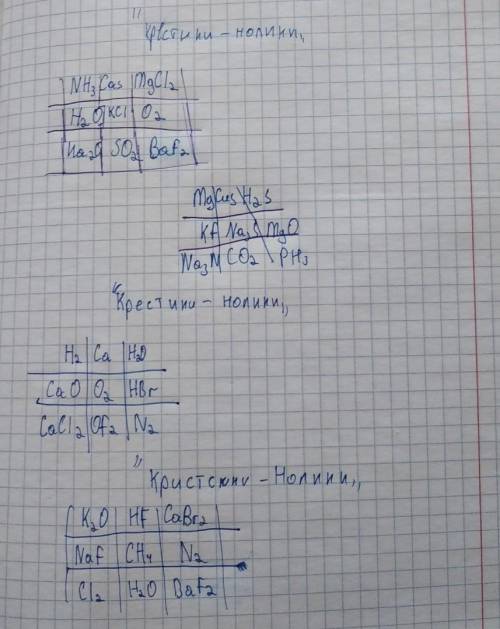 "Крестики - нолики,,
NH₃ CaS MgCl₂
H₂O KCl O₂
Na₂O SO₂ BaF₂
Mg CuS H₂S
KF Na₂S MgO
Na₃N CO₂ PH₃
"Крестики - нолики,,
H₂ Ca H₂O
CaO O₂ HBr
CaCl₂ OF₂ N₂
"Кристики - Нолики,,
K₂O HF CaBr₂
NaF CH₄ N₂
Cl₂ H₂O BaF₂